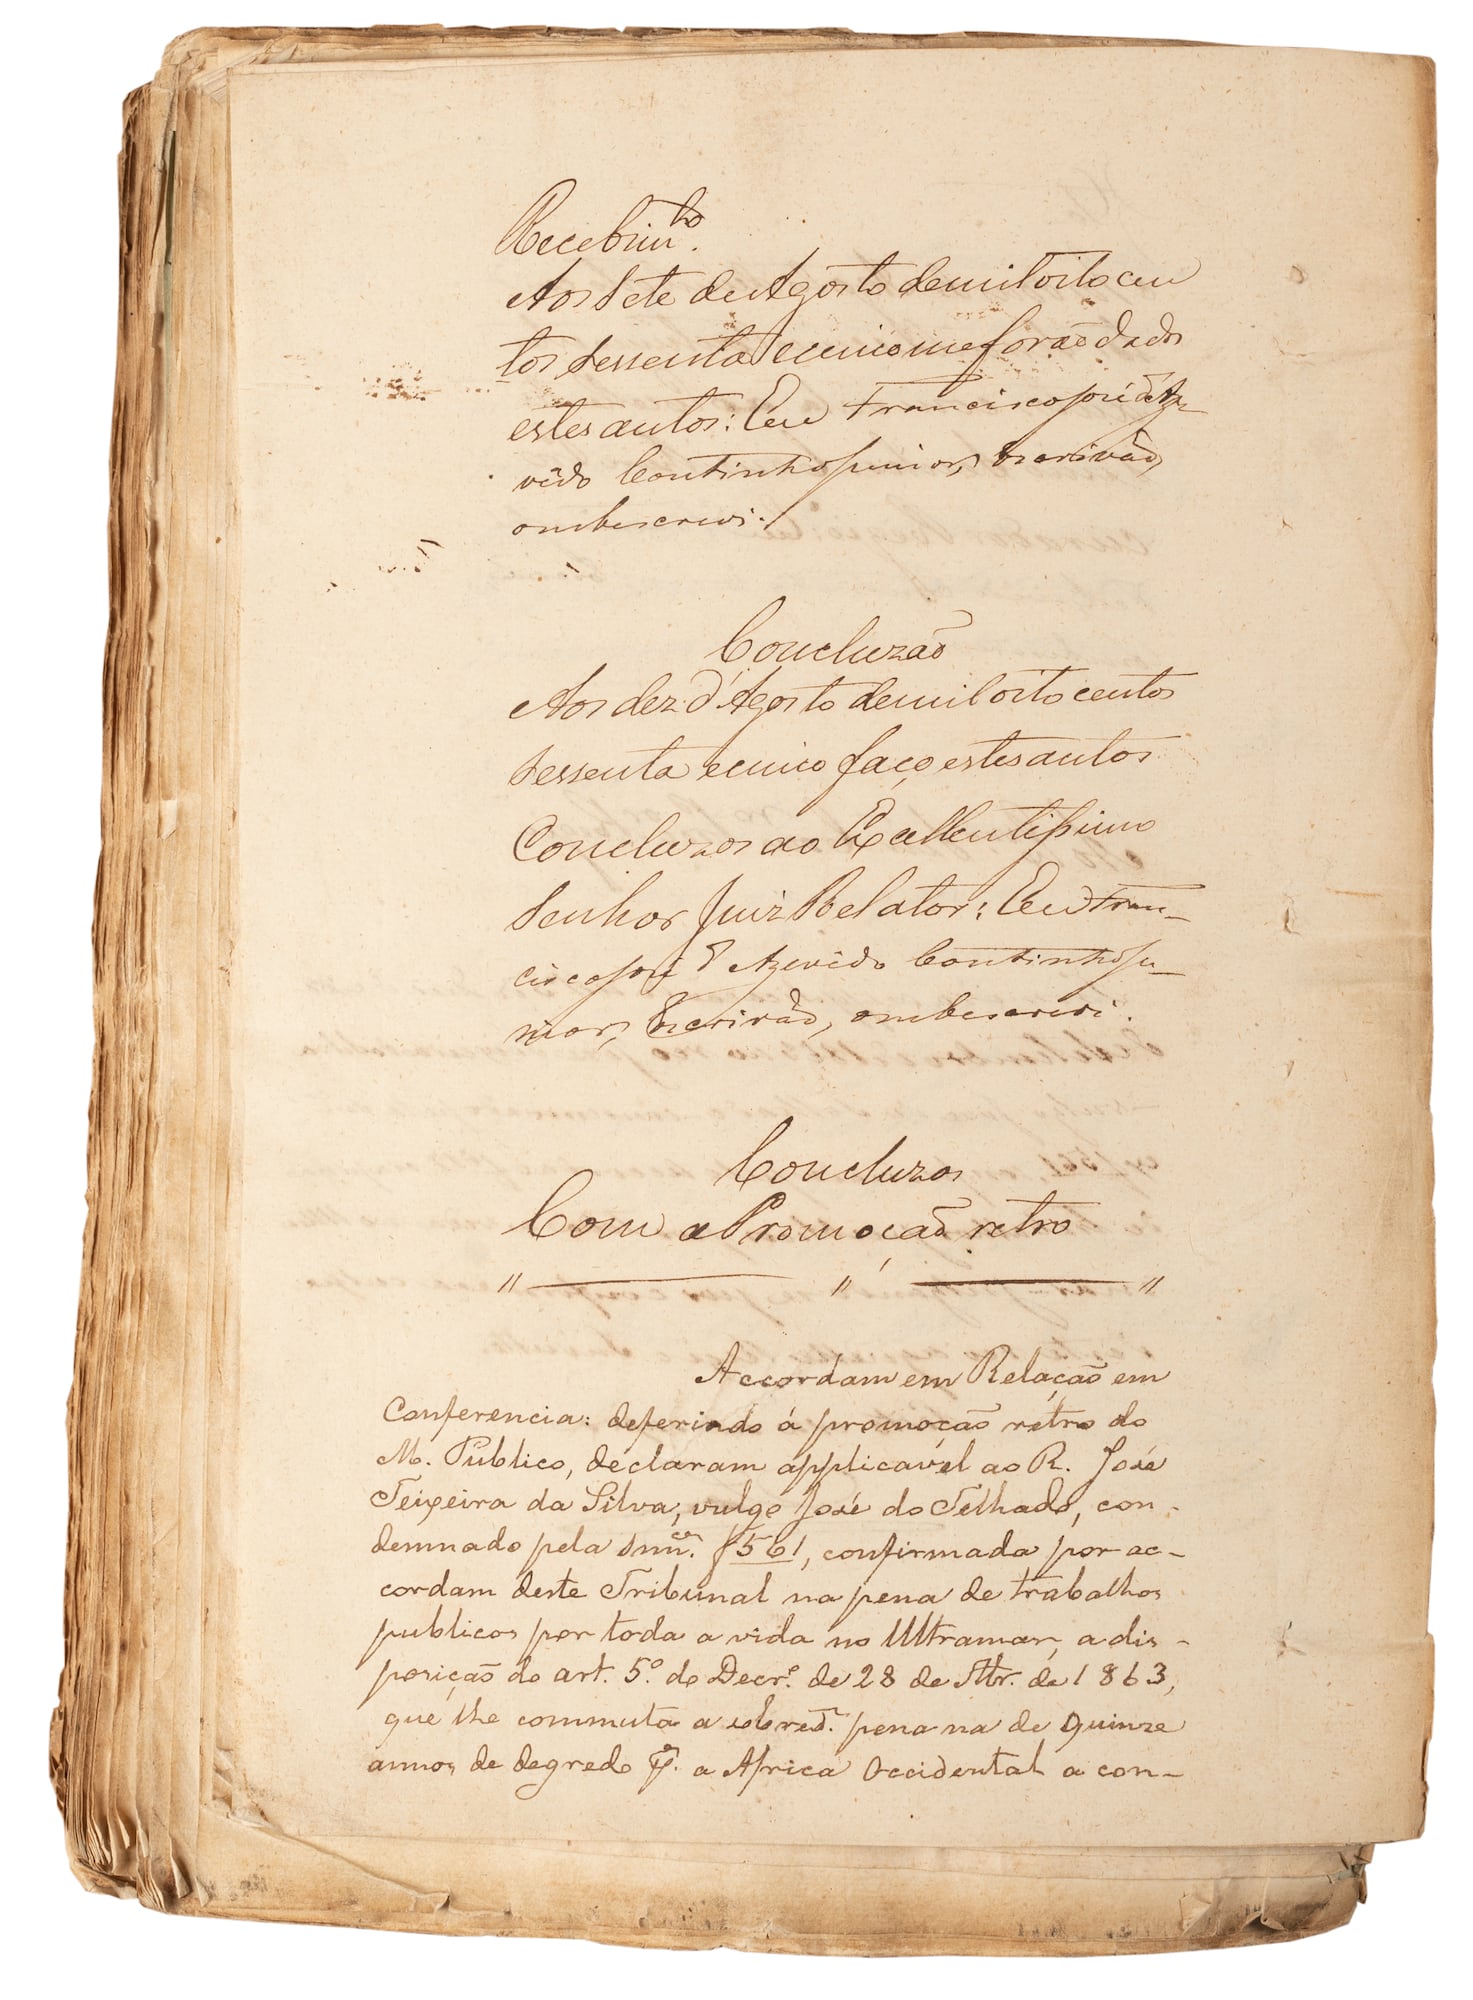 Recebim.to
Aos sete de Agosto de mil oito cen
tos sessenta e cinco me forão dados
estes autos: Eu Francisco José d'Aze-
vêdo Coutinho Junior, Escrivão,
o subescrevi.
Concluzão
Aos dez d'Agosto de mil oito centos
sessenta e cinco faço estes autos
Concluzos ao Excellentissimo
Senhor Juiz Relator: Eu Fran-
cisco José d'Azevêdo Coutinho Ju-
nior, Escrivão, o subescrevi.
Concluzos
Com a Promoção retro
" " "
Accordam em Relação em
Conferencia: deferindo á promoção retro do
M. Publico, declaram applicavel ao R. José
Teixeira da Silva, vulgo José do Telhado, con-
demnado pela snn.ça f 561, confirmada por ac-
cordam deste Tribunal na pena de trabalhos
publicos por toda a vida no Ultramar, a dis-
posição do art. 5.º do Decr.º de 28 de 7br. de 1863,
que lhe commuta a sobred.ª pena na de quinze
annos de degredo p.ª a Africa Occidental a con-